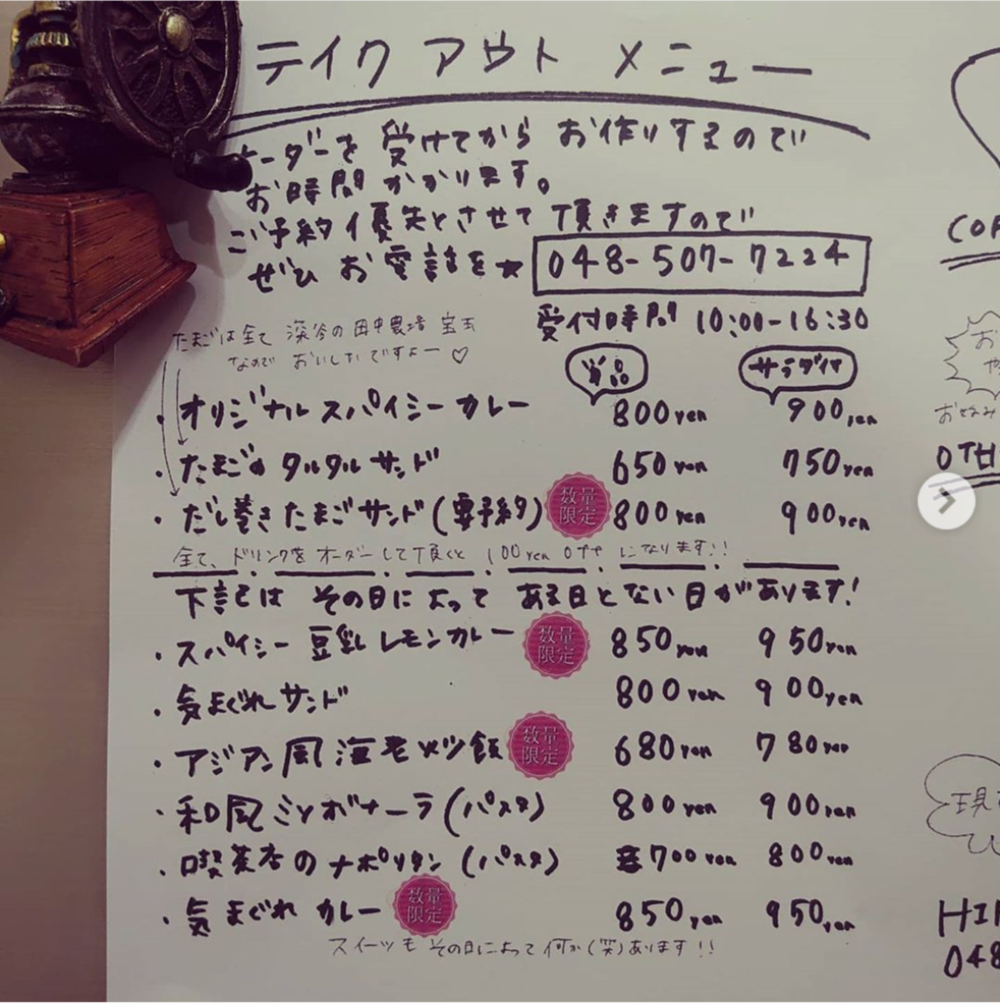 テイクアウト メニュー
オーダーを受けてから お作りするので
お時間かかります。
ご予約優先とさせて頂きますので
ぜひ お電話を★ 048-507-7224
受付時間 10:00-16:30
たまごは全て 深谷の田中農場 宝玉
なので おいしいですよー♡
単品 サラダ付
・オリジナル スパイシー カレー 800yen 900yen
・たまごのタルタルサンド 650yen 750yen
・だし巻きたまごサンド(要予約) 数量限定 800yen 900yen
全て、ドリンクをオーダーして頂くと 100yen Off になります!!
下記は その日によって ある日とない日があります!
・スパイシー 豆乳レモンカレー 数量限定 850yen 950yen
・気まぐれサンド 800yen 900yen
・アジアン風 海老メシ飯 数量限定 680yen 780yen
・和風ミソボナーラ(パスタ) 800yen 900yen
・喫茶店のナポリタン(パスタ) 700yen 800yen
・気まぐれ カレー 数量限定 850yen 950yen
スイーツも その日によって何か(笑)あります!!
お
や
現
048